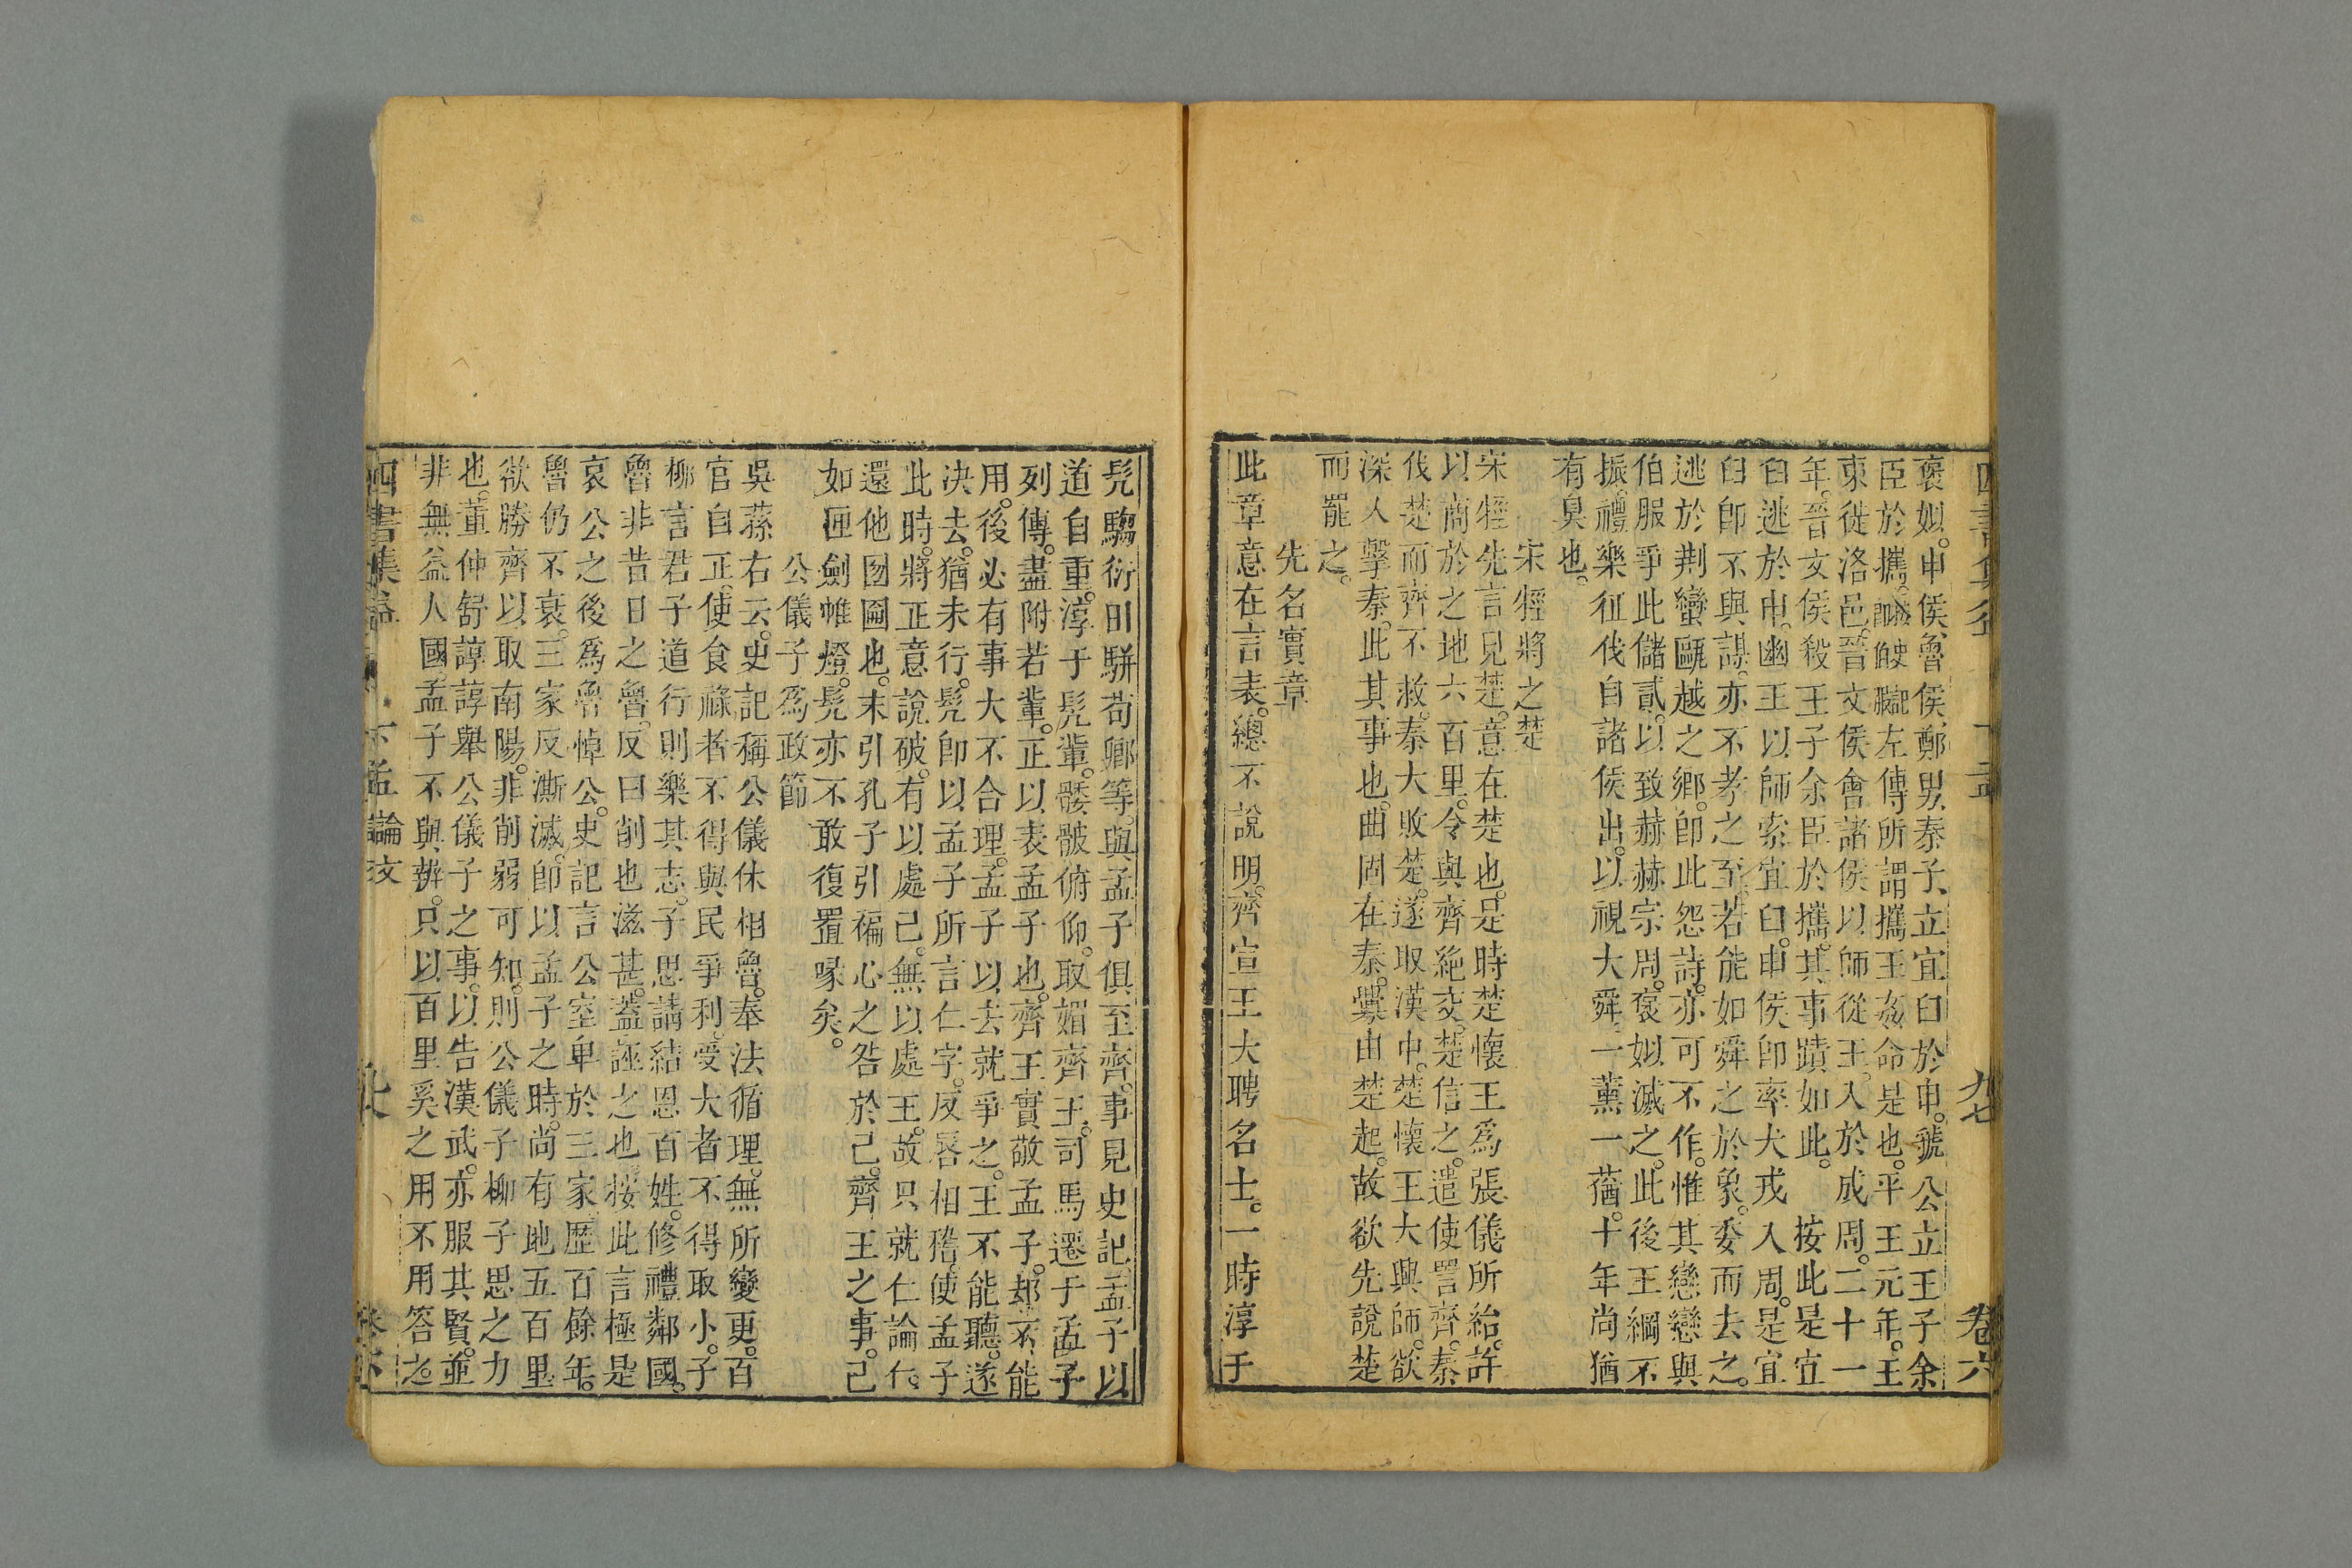 褒姒。申侯、魯侯、鄭男、秦子、立宜臼於申。虢公立王子余
臣於攜。左傳所謂攜王姦命是也。平王元年。王
東徙洛邑。晉文侯會諸侯以師從王。入於成周。二十一
年。晉文侯殺王子余臣於攜。其事蹟如此。按此是宜
臼逃於申。幽王以師索宜臼。申侯卽率犬戎入周。是宜
臼卽不與謀。亦不考之至。若能如舜之於象。委而去之。
逃於荆蠻甌越之鄕。卽此怨詩。亦可不作。惟其戀戀與
伯服爭此儲貳。以致赫赫宗周。褒姒滅之。此後王綱不
振。禮樂征伐自諸侯出。以視大舜一薰一蕕。十年尚猶
有臭也。
宋牼將之楚
宋牼先言見楚。意在楚也。是時楚懷王爲張儀所紿。許
以商於之地六百里。令與齊絶交。楚信之。遣使詈齊。秦
伐楚而齊不救。秦大敗楚。遂取漢中。楚懷王大興師。欲
深入擊秦。此其事也。曲固在秦。釁由楚起。故欲先說楚
而罷之。
先名實章
此章意在言表。總不說明。齊宣王大聘名士。一時淳于
髠騶衍田駢荀卿等。與孟子俱至齊。事見史記。孟子以
道自重。淳于髠輩。骫骳俯仰。取媚齊王。司馬遷于孟子
列傳。盡附若輩。正以表孟子也。齊王實敬孟子。却不能
用。後必有事大不合理。孟子以去就爭之。王不能聽。遂
决去。猶未行。髠卽以孟子所言仁字。反唇相稽。使孟子
此時。將正意說破。有以處己。無以處王。故只就仁論仁。
還他囫圇也。末引孔子引褊心之咎於己。齊王之事。己
如匣劍帷燈。髠亦不敢復置喙矣。
公儀子爲政節
吳蓀右云。史記稱公儀休相魯。奉法循理。無所變更。百
官自正。使食祿者不得與民爭利。受大者不得取小。子
柳言君子道行則樂其志。子思講結恩百姓。修禮鄰國。
魯非昔日之魯。反曰削也滋甚。蓋誣之也按此言極是
哀公之後爲魯悼公。史記言公室卑於三家歷百餘年。
魯仍不衰。三家反漸滅。卽以孟子之時。尚有地五百里
欲勝齊以取南陽。非削弱可知。則公儀子柳子思之力
也。董仲舒諄諄舉公儀子之事。以告漢武。亦服其賢。並
非無益人國。孟子不與辨。只以百里奚之用不用答之。